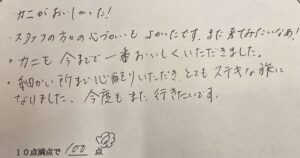 ・カニがおいしかった!
・スタッフの方々の心づかいもよかったです。また来てみたいなあ!
・カニも今までで一番おいしくいただきました。
・細かい所まで心配りいただき、とてもステキな旅に
なりました。今度もまた行きたいです。
10点満点で 100 点